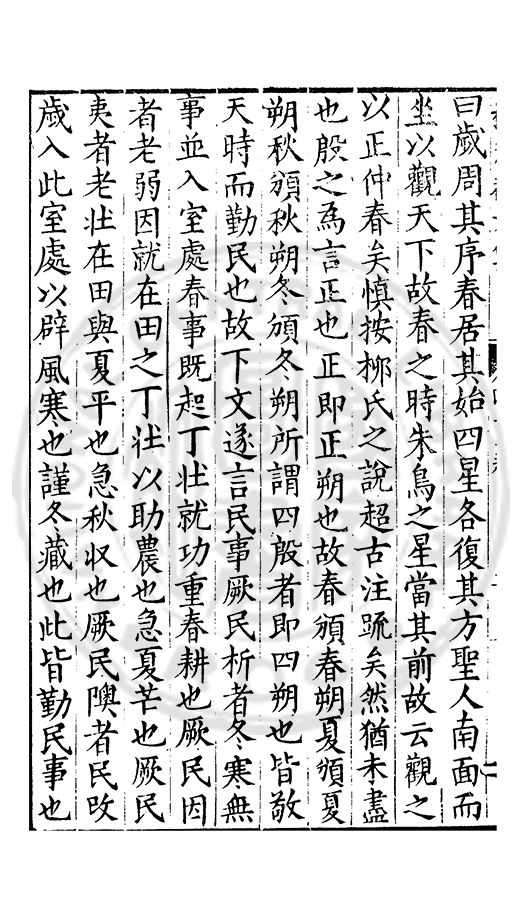 曰歲周其序春居其始四星各復其方聖人南面而
坐以觀天下故春之時朱鳥之星當其前故云觀之
以正仲春矣慎按柳氏之說超古注疏矣然猶未盡
也殷之為言正也正即正朔也故春頒春朔夏頒夏
朔秋頒秋朔冬頒冬朔所謂四殷者即四朔也皆敬
天時而勤民也故下文遂言民事厥民析者冬寒無
事並入室處春事既起丁壯就功重春耕也厥民因
者老弱因就在田之丁壯以助農也急夏芒也厥民
夷者老壯在田與夏平也急秋収也厥民隩者民改
歲入此室處以辟風寒也謹冬藏也此皆勤民事也